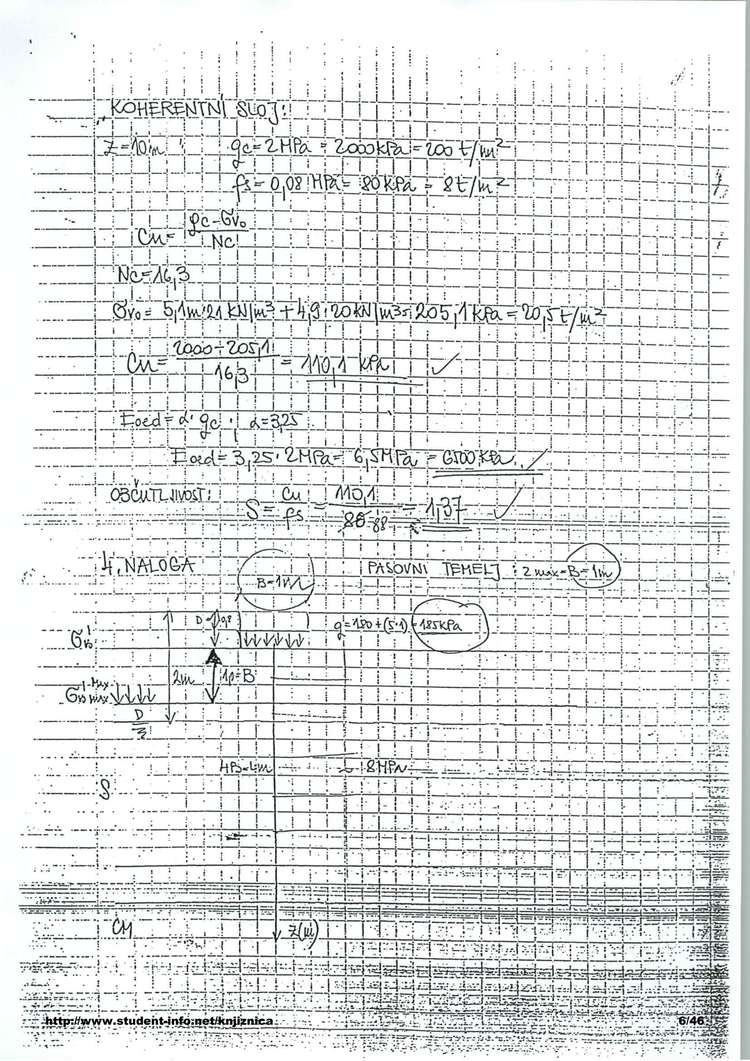 "KOHERENTNI SLOJ:
Z=10m qc=2MPa = 2000kPa=200t/m²
fs=0,08 MPa= 80kPa = 8t/m²
Cu= qc-σv₀ / Nc
Nc=16,3
σv₀= 5,1m·21kN/m³+4,9·20kN/m³=205,1kPa=20,5t/m²
Cu= 2000-205,1 / 16,3 = 110,1 kPa ✓
Eoed=α·qc ; α=3,25
Eoed=3,25·2MPa= 6,5MPa=6500kPa ✓
OBČUTLJIVOST: S= Cu/fs = 110,1 / 80 = 1,37 ✓
4. NALOGA B=1m PASOVNI TEMELJ : B=1m
q=180+(5·1)=185kPa
2m =B
4B=4m 8MPa
S
CM z(m)
http://www.student-info.net/knjiznica 6/46